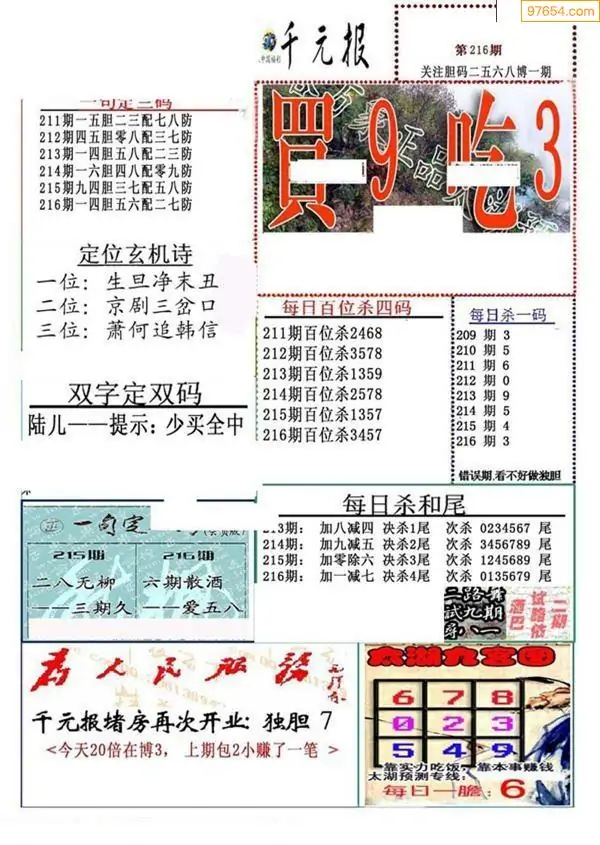 97654.com
千元报
第216期
关注胆码二五六八博一期
一句定三码
211期一五胆二三配七八防
212期四五胆零八配三七防
213期一四胆五八配二三防
214期一六胆四八配零九防
215期九四胆三七配五八防
216期一四胆五六配二七防
買9 吃3
定位玄机诗
一位：生旦净末丑
二位：京剧三岔口
三位：萧何追韩信
每日百位杀四码
211期百位杀2468
212期百位杀3578
213期百位杀1359
214期百位杀2578
215期百位杀1357
216期百位杀3457
每日杀一码
209 期 3
210 期 5
211 期 6
212 期 0
213 期 9
214 期 5
215 期 4
216 期 3
错误期,看不好做独胆
双字定双码
陆儿——提示：少买全中
一句定
215期
二八无柳
——三期久
216期
六期散酒
——爱五八
每日杀和尾
213期： 加八减四 决杀1尾 次杀 0234567 尾
214期： 加九减五 决杀2尾 次杀 3456789 尾
215期： 加零除六 决杀3尾 次杀 1245689 尾
216期： 加一减七 决杀4尾 次杀 0135679 尾
二路舞
试九期
寻 一
酒巴
试路依
二期
为人民服务
千元报堵房再次开业：独胆 7
<今天20倍在博3， 上期包2小赚了一笔 >
太湖九宫图
6 7 8
0 2 3
5 4 9
靠实力吃饭，靠本事赚钱
太湖预测专线：
每日一胆： 6